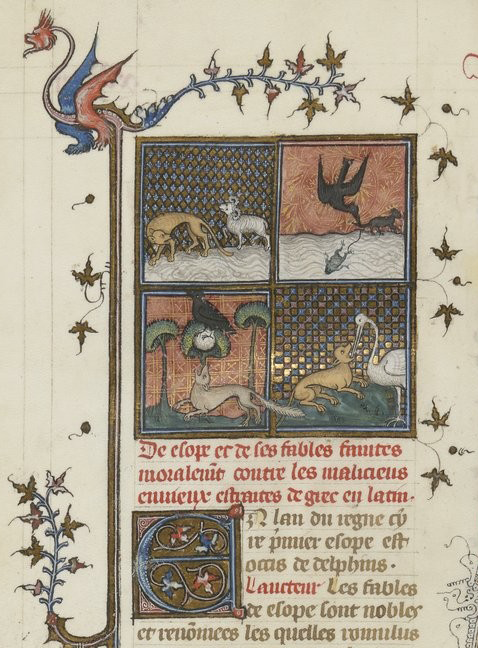 De esope et de ses fables faintes
moralem̄t contre les malicieus
enuieux estraites de grec en latin.
EN lan du regne cy
re p̄mier esope est
occis de delphins.
Laucteur Les fables
de esope sont nobles
et renōmees les quelles romulus